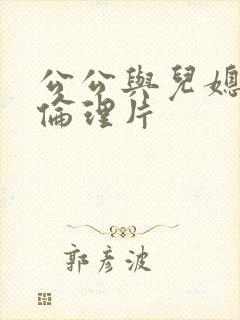 公公與兒媳
倫理片
郭彥波